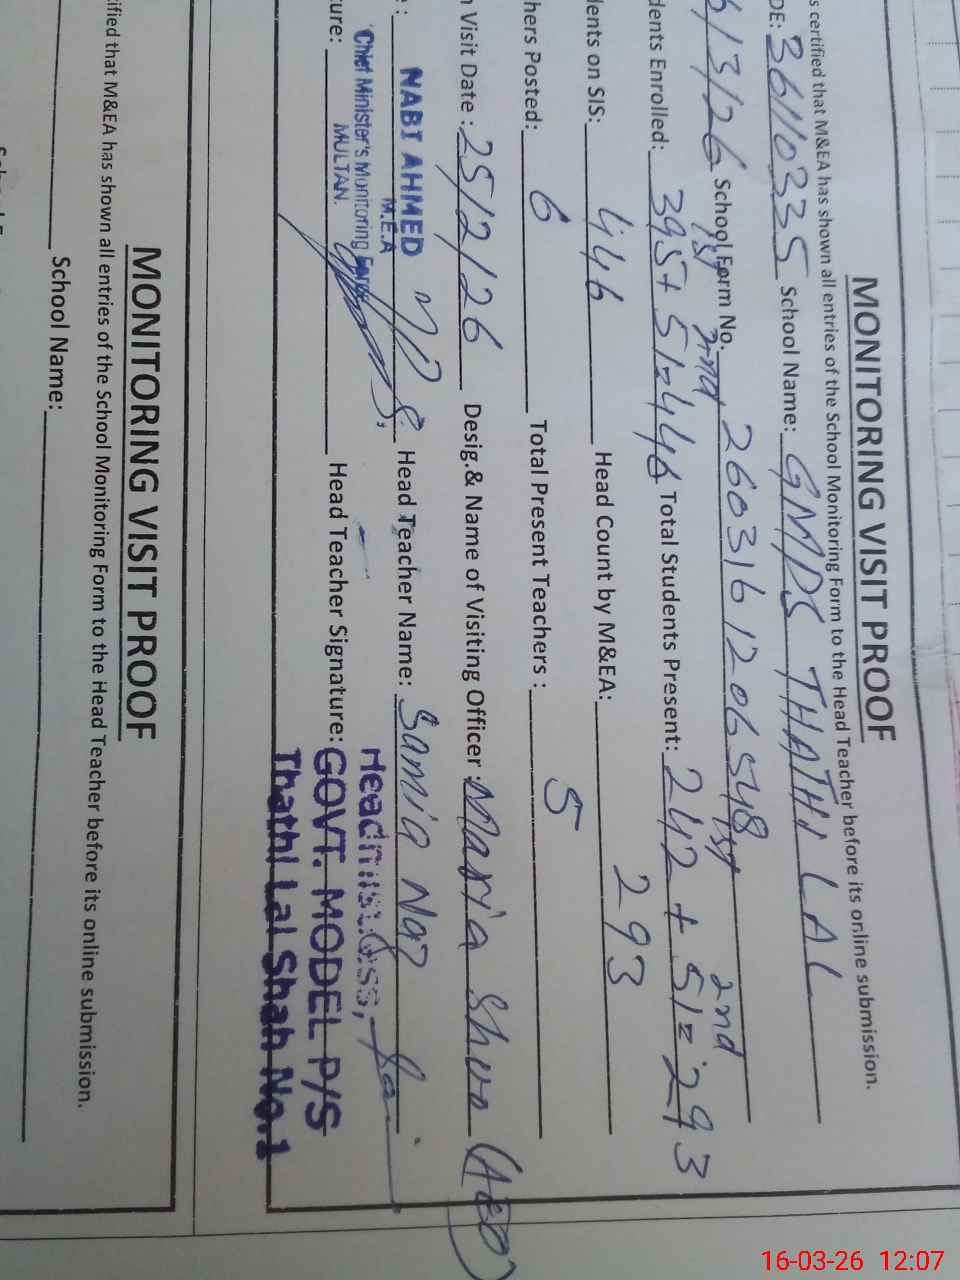 MONITORING VISIT PROOF
s certified that M&EA has shown all entries of the School Monitoring Form to the Head Teacher before its online submission.
DE: 36110335 School Name: GMPS THATHI LAL
6/3/26 School Form No. 26031612 06548
1st 2nd 1st 2nd
dents Enrolled: 395+51=446 Total Students Present: 242+51=293
dents on SIS: 446 Head Count by M&EA: 293
hers Posted: 6 Total Present Teachers : 5
n Visit Date : 25/2/26 Desig.& Name of Visiting Officer : Maria (AEO)
e : NABI AHMED Head Teacher Name: Samia Naz
M.E.A
Chief Minister's Monitoring Force
MULTAN.
ture: Head Teacher Signature:
Headmistress,
GOVT. MODEL P/S
Thathi Lal Shah No.1
MONITORING VISIT PROOF
tified that M&EA has shown all entries of the School Monitoring Form to the Head Teacher before its online submission.
School Name:
16-03-26 12:07